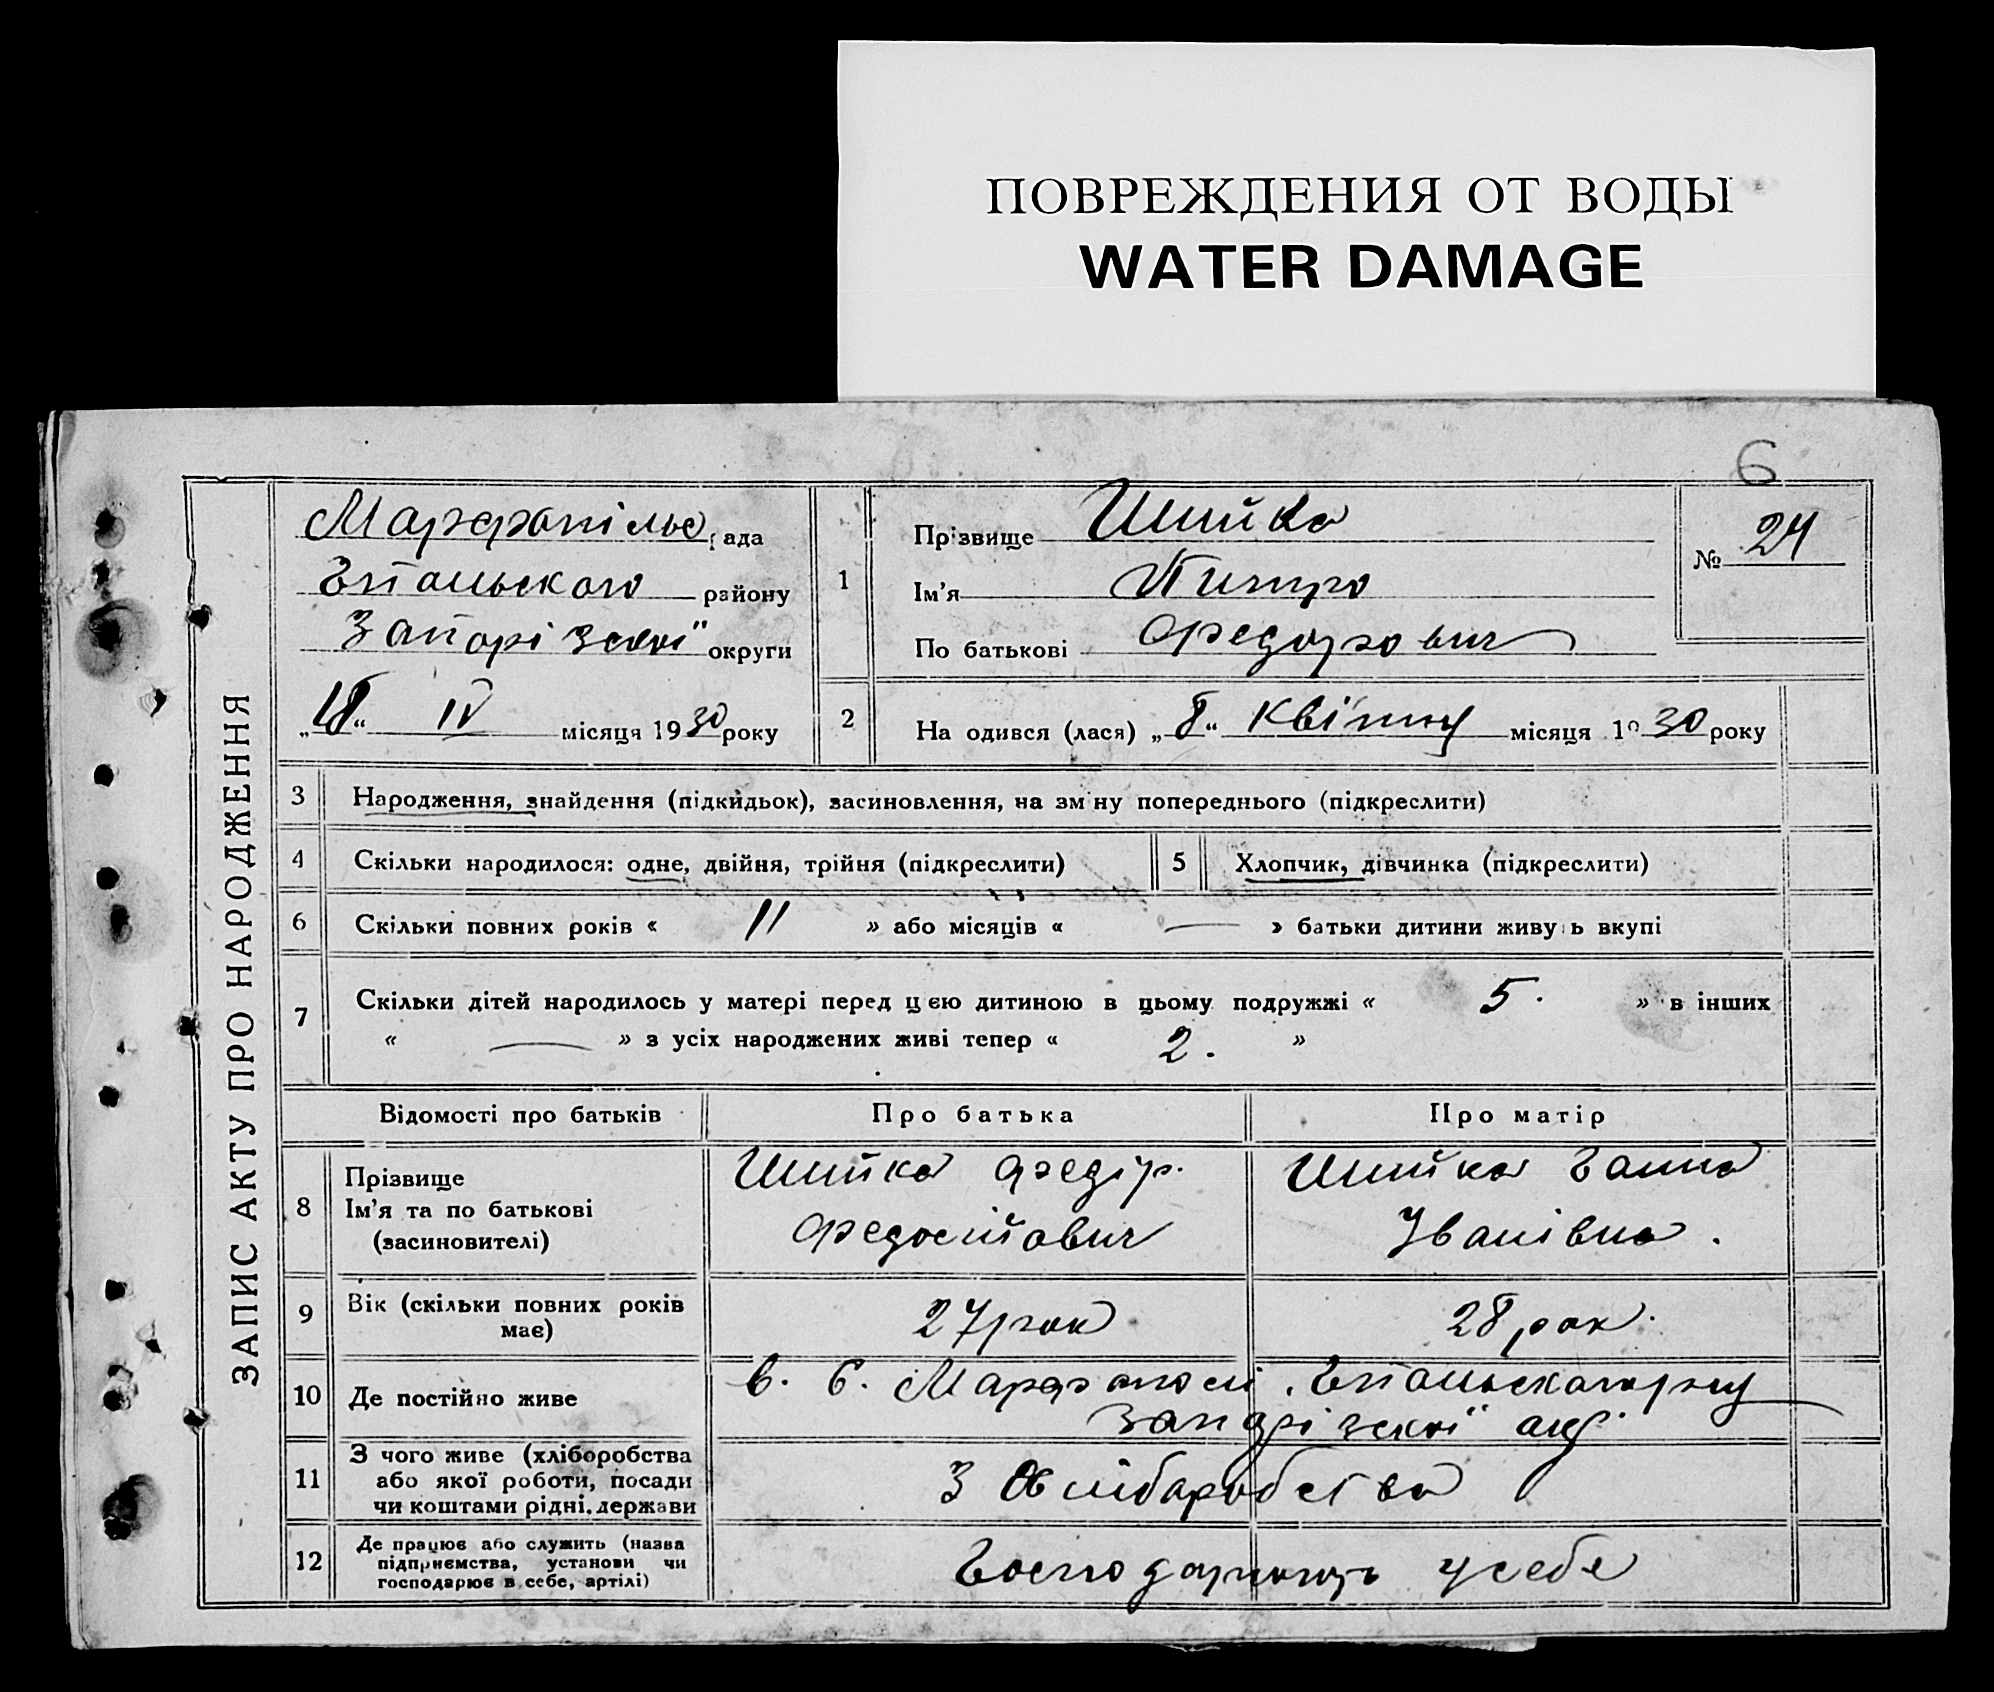 ПОВРЕЖДЕНИЯ ОТ ВОДЫ
WATER DAMAGE
6
ЗАПИС АКТУ ПРО НАРОДЖЕННЯ
Марфопільс рада
Гпальского району
Запорізскої округи
„18“ IV місяця 1930 року
1
Прізвище Шийка
Ім'я Питро
По батькові Федорович
№ 24
2 На одився (лася) „8“ Квітня місяця 1930 року
3 Народження, знайдення (підкидьок), засиновлення, на зміну попереднього (підкреслити)
4 Скільки народилося: одне, двійня, трійня (підкреслити)
5 Хлопчик, дівчинка (підкреслити)
6 Скільки повних років « 11 » або місяців « — » батьки дитини живуть вкупі
7 Скільки дітей народилось у матері перед цією дитиною в цьому подружжі « 5. » в інших
« — » з усіх народжених живі тепер « 2. »
Відомості про батьків Про батька Про матір
8 Прізвище
Ім'я та по батькові
(засиновителі)
Шийка Федір.
Федосійович
Шийка Ганна
Іванівна.
9 Вік (скільки повних років
має)
27 рок 28 рок.
10 Де постійно живе
в. с. Марфополі, Гпальского р-ну
Запорізскої окр.
11 З чого живе (хліборобства
або якої роботи, посади
чи коштами рідні, держави
З Хлібаробства
12 Де працює або служить (назва
підприємства, установи чи
господарює в себе, артілі)
Господарюють усебе